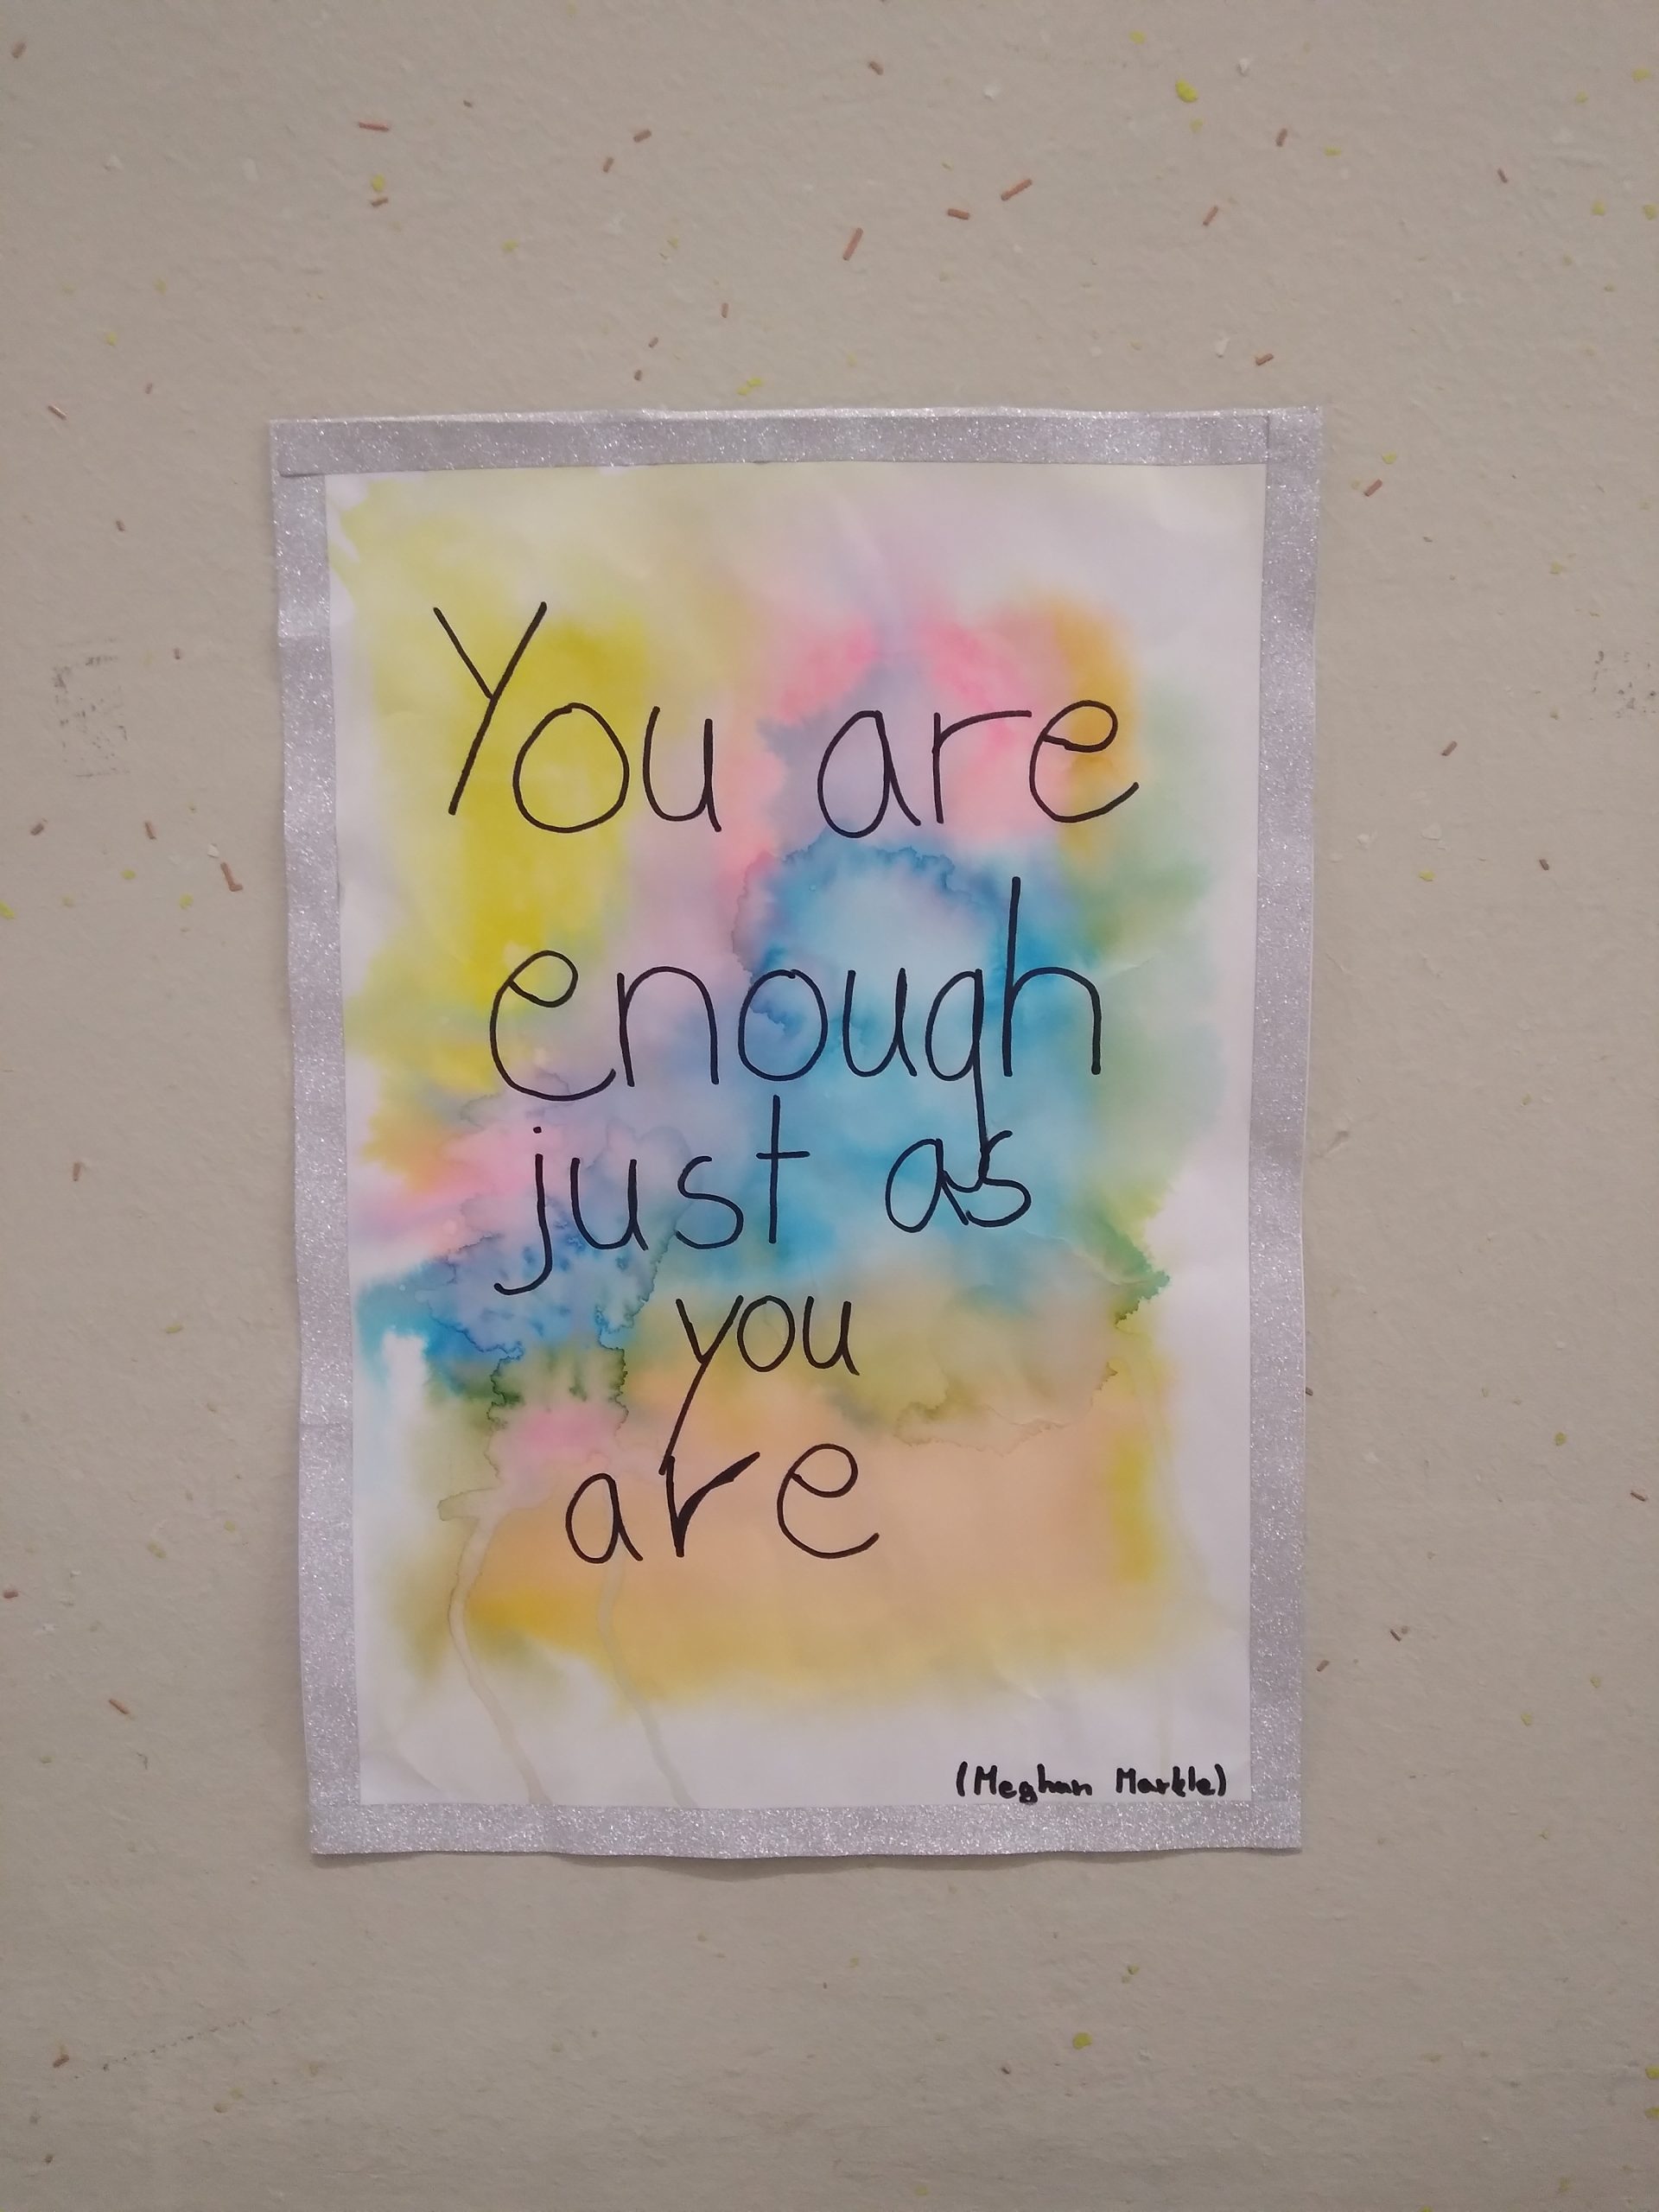 You are
enough
just as
you
are
(Meghan Markle)